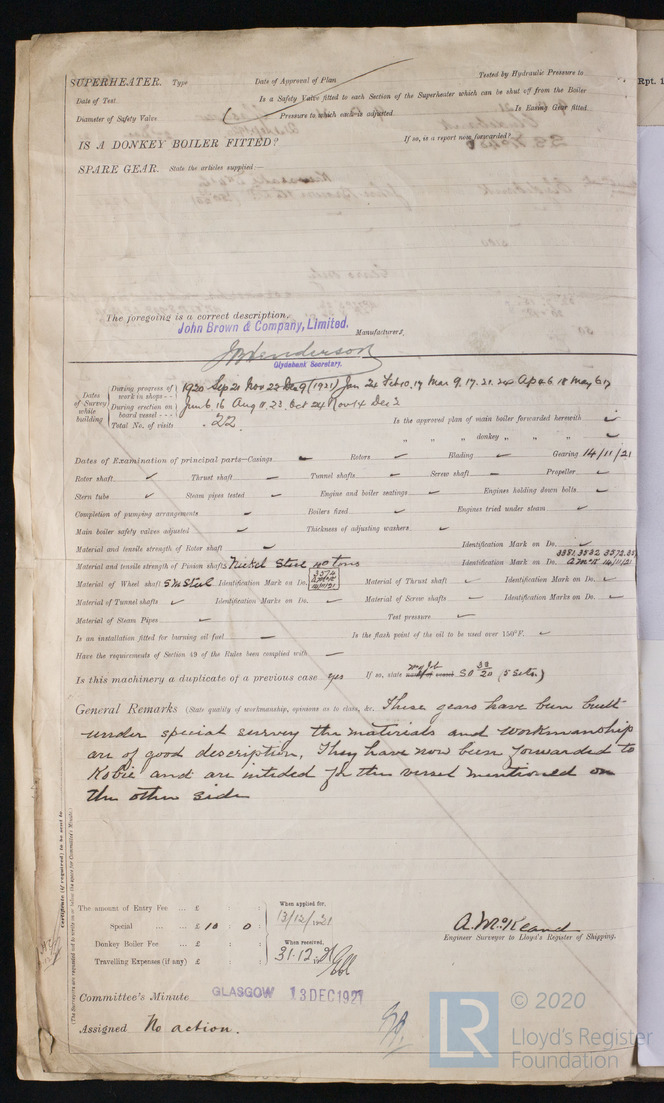 SUPERHEATER. Type Date of Approval of Plan Tested by Hydraulic Pressure to
Date of Test Is a Safety Valve fitted to each Section of the Superheater which can be shut off from the Boiler
Diameter of Safety Valve Pressure to which each is adjusted Is Easing Gear fitted
IS A DONKEY BOILER FITTED? If so, is a report now forwarded?
SPARE GEAR. State the articles supplied:—
Rpt. 1
The foregoing is a correct description,
John Brown & Company, Limited. Manufacturers.
Clydebank Secretary.
Dates of Survey while building
During progress of work in shops - - 1920 Sep 21 Nov 22 Dec 9 (1921) Jan 24 Feb 10.17 Mar 9.17.21.24 Ap 4.6.18 May 6.17
During erection on board vessel - - - June 6.16 Aug 11.23. Oct 24 Nov 14 Dec 2
Total No. of visits 22 Is the approved plan of main boiler forwarded herewith
" " donkey " " "
Dates of Examination of principal parts—Casings Rotors Blading Gearing 14/11/21
Rotor shaft Thrust shaft Tunnel shafts Screw shaft Propeller
Stern tube Steam pipes tested Engine and boiler seatings Engines holding down bolts
Completion of pumping arrangements Boilers fixed Engines tried under steam
Main boiler safety valves adjusted Thickness of adjusting washers
Material and tensile strength of Rotor shaft Identification Mark on Do.
3381.3532 3572.35
Material and tensile strength of Pinion shafts Nickel Steel 40 tons Identification Mark on Do. A.McK 14/11/21
Material of Wheel shaft S.M Steel Identification Mark on Do. 3574 A.McK 14/11/21 Material of Thrust shaft Identification Mark on Do.
Material of Tunnel shafts Identification Marks on Do. Material of Screw shafts Identification Marks on Do.
Material of Steam Pipes Test pressure
Is an installation fitted for burning oil fuel Is the flash point of the oil to be used over 150°F.
Have the requirements of Section 49 of the Rules been complied with
Is this machinery a duplicate of a previous case yes If so, state (5 Sets.)
General Remarks (State quality of workmanship, opinions as to class, &c. These gears have been built
under special survey the materials and workmanship
are of good description, They have now been forwarded to
Kobie and are intided for the vessel mentioned on
the other side
Certificate (if required) to be sent to
(The Surveyors are requested not to write on or below the space for Committee's Minute.)
The amount of Entry Fee ... £ : : When applied for,
Special ... ... £ 10 : 0 : 13/12/1921
Donkey Boiler Fee ... £ : : When received,
Travelling Expenses (if any) £ : : 31.12.21
A. McKeand
Engineer Surveyor to Lloyd's Register of Shipping.
Committee's Minute GLASGOW 13 DEC 1921
Assigned No action.
LR
© 2020
Lloyd's Register
Foundation